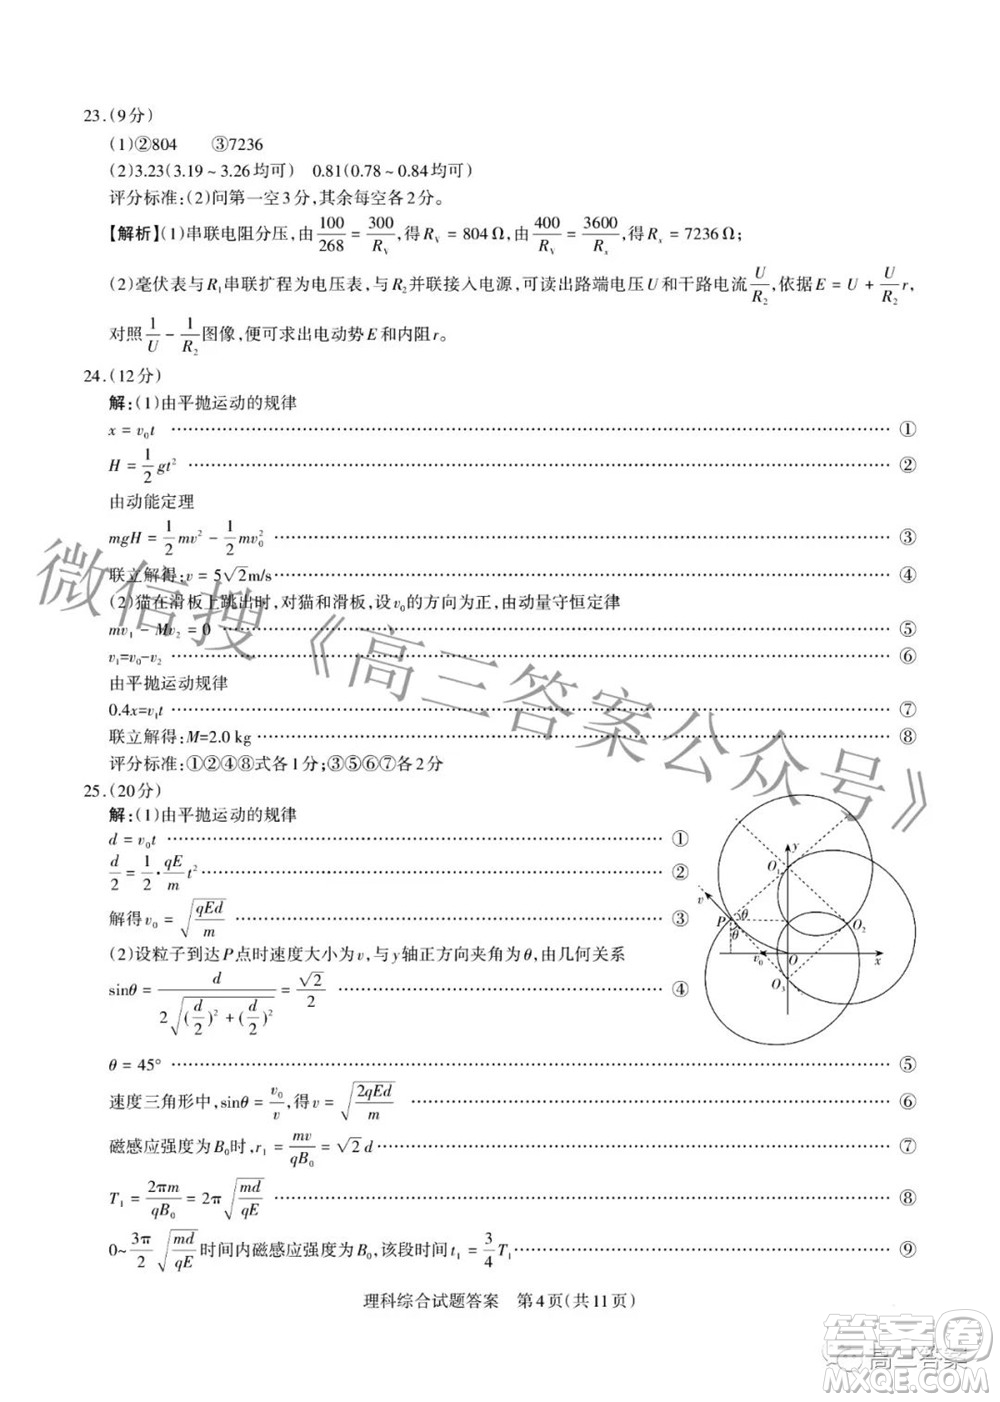 23.(9分)
(1)②804 ③7236
(2)3.23(3.19~3.26均可) 0.81(0.78~0.84均可)
评分标准:(2)问第一空3分,其余每空各2分。
【解析】(1)串联电阻分压,由100/268=300/R_V,得R_V=804Ω,由400/R_V=3600/R_x,得R_x=7236Ω;
(2)毫伏表与R₁串联扩程为电压表,与R₂并联接入电源,可读出路端电压U和干路电流U/R₂,依据E=U+(U/R₂)r,
对照1/U-1/R₂图像,便可求出电动势E和内阻r。
24.(12分)
解:(1)由平抛运动的规律
x=v₀t ①
H=1/2gt² ②
由动能定理
mgH=1/2mv²-1/2mv₀² ③
联立解得:v=5√2m/s ④
(2)猫在滑板上跳出时,对猫和滑板,设v₀的方向为正,由动量守恒定律
mv₁-Mv₂=0 ⑤
v₁=v₀-v₂ ⑥
由平抛运动规律
0.4x=v₁t ⑦
联立解得:M=2.0 kg ⑧
评分标准:①②④⑧式各1分;③⑤⑥⑦各2分
25.(20分)
解:(1)由平抛运动的规律
d=v₀t ①
d/2=1/2·(qE/m)t² ②
解得v₀=√(qEd/m) ③
(2)设粒子到达P点时速度大小为v,与y轴正方向夹角为θ,由几何关系
sinθ=d/(2√((d/2)²+(d/2)²))=√2/2 ④
θ=45° ⑤
速度三角形中,sinθ=v₀/v,得v=√(2qEd/m) ⑥
磁感应强度为B₀时,r₁=mv/qB₀=√2d ⑦
T₁=2πm/qB₀=2π√(md/qE) ⑧
0~(3π/2)√(md/qE)时间内磁感应强度为B₀,该段时间t₁=3/4T₁ ⑨
y
O₁
v
P
θ
θ
O₂
v₀
O
x
O₃
理科综合试题答案 第4页(共11页)
微信搜《高三答案公众号》
答案卷
高三答案
MXQE.COM